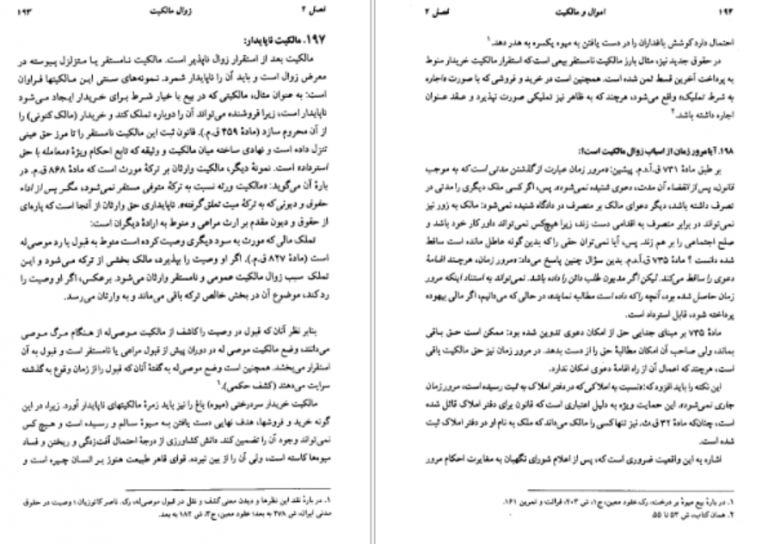 فصل ۲
زوال مالکیت
۱۹۳
۱۹۷. مالکیت ناپایدار:
مالکیت بعد از استقرار زوال ناپذیر است. مالکیت نامستقر یا متزلزل پیوسته در
معرض زوال است و باید آن را ناپایدار شمرد. نمونه‌های سنتی این مالکیتها فراوان
است: به عنوان مثال، مالکیتی که در بیع با خیار شرط برای خریدار ایجاد می‌شود
ناپایدار است، زیرا فروشنده می‌تواند آن را دوباره تملک کند و خریدار (مالک کنونی) را
از آن محروم سازد (مادۀ ۴۵۹ ق.م.). قانون ثبت این مالکیت نامستقر را تا مرز حق عینی
تنزل داده است و نهادی ساخته میان مالکیت و وثیقه که تابع احکام ویژۀ «معامله با حق
استرداد» است. نمونۀ دیگر، مالکیت وارثان بر ترکۀ مورث است که مادۀ ۸۶۸ ق.م. در
بارۀ آن می‌گوید: «مالکیت ورثه نسبت به ترکۀ متوفی مستقر نمی‌شود، مگر پس از اداء
حقوق و دیونی که به ترکۀ میت تعلق گرفته». ناپایداری حق وارثان از آنجا است که پاره‌ای
از حقوق و دیون مقدم بر ارث مراعی و منوط به ارادۀ دیگران است:
تملک مالی که مورث به سود دیگری وصیت کرده است منوط به قبول یا رد موصی‌له
است (مادۀ ۸۲۷ ق.م.). اگر او وصیت را بپذیرد، مالک بخشی از ترکه می‌شود و این
تملک سبب زوال مالکیت عمومی و نامستقر وارثان می‌شود. برعکس، اگر او وصیت را
رد کند، موضوع آن در بخش خالص ترکه باقی می‌ماند و به وارثان می‌رسد.
بنابر نظر آنان که قبول در وصیت را کاشف از مالکیت موصی‌له از هنگام مرگ موصی
می‌دانند، وضع مالکیت موصی له در دوران پیش از قبول مراعی یا نامستقر است و قبول به آن
استقرار می‌بخشد. همچنین است وضع موصی‌له به گفتۀ آنان که قبول را از زمان وقوع به گذشته
سرایت می‌دهند (کشف حکمی).۱
مالکیت خریدار سردرختی (میوه) باغ را نیز باید در زمرۀ مالکیتهای ناپایدار آورد. زیرا، در این
گونه خرید و فروشها، هدف نهایی دست یافتن به میوۀ سالم و رسیده است و هیچ کس
نمی‌تواند وجود آن را تضمین کند. دانش کشاورزی از درجۀ احتمال آفت‌زدگی و ریختن و فساد
میوه‌ها کاسته است، ولی آن را از بین نبرده. قوای قاهر طبیعت هنوز بر انسان چیره است و
۱. در بارۀ نقد این نظرها و دیدن معنی کشف و نقل در قبول موصی‌له، رک. ناصر کاتوزیان؛ وصیت در حقوق
مدنی ایران، ش ۴۷۸ به بعد؛ عقود معین، ج۳، ش ۱۸۲ به بعد.
۱۹۴
اموال و مالکیت
فصل ۲
احتمال دارد کوشش باغداران را در دست یافتن به میوه یکسره به هدر دهد.۱
در حقوق جدید نیز، مثال بارز مالکیت نامستقر بیعی است که استقرار مالکیت خریدار منوط
به پرداخت آخرین قسط ثمن شده است. همچنین است در خرید و فروشی که با صورت «اجاره
به شرط تملیک» واقع می‌شود، هرچند که به ظاهر نیز تملیکی صورت نپذیرد و عقد عنوان
اجاره داشته باشد.۲
۱۹۸. آیا مرور زمان از اسباب زوال مالکیت است؟:
بر طبق مادۀ ۷۳۱ ق.آ.د.م. پیشین: «مرور زمان عبارت از گذشتن مدتی است که به موجب
قانون، پس از انقضاء آن مدت، دعوی شنیده نمی‌شود». پس، اگر کسی ملک دیگری را مدتی در
تصرف داشته باشد، دیگر دعوای مالک بر متصرف در دادگاه شنیده نمی‌شود: مالک به زور نیز
نمی‌تواند در برابر متصرف به اقدامی دست زند، زیرا هیچ‌کس نمی‌تواند داور کار خود باشد و
صلح اجتماعی را بر هم زند. پس، آیا نمی‌توان حقی را که بدین گونه عاطل مانده است ساقط
شده دانست؟ مادۀ ۷۳۵ ق.آ.د.م. بدین سؤال چنین پاسخ می‌داد: «مرور زمان، هرچند اقامۀ
دعوی را ساقط می‌کند، لیکن اگر مدیون طلب دائن را داده باشد، نمی‌تواند به استناد اینکه مرور
زمان حاصل شده بود، آنچه را که داده است مطالبه نماید»، در حالی که می‌دانیم، اگر مالی بیهوده
پرداخته شود، قابل استرداد است.
مادۀ ۷۳۵ بر مبنای جدایی حق از امکان دعوی تدوین شده بود: ممکن است حق باقی
بماند، ولی صاحب آن امکان مطالبۀ حق را از دست بدهد. در مرور زمان نیز حق مالکیت باقی
است، هرچند که اعمال آن از راه اقامۀ دعوی امکان ندارد.
این نکته را باید افزود که: «نسبت به املاکی که در دفتر املاک به ثبت رسیده است، مرور زمان
جاری نمی‌شود». این حمایت ویژه به دلیل اعتباری است که قانون برای دفتر املاک قائل شده
است، چنانکه مادۀ ۲۲ ق.ث. نیز تنها کسی را مالک می‌داند که ملک به نام او در دفتر املاک ثبت
شده است.
اشاره به این واقعیت ضروری است که، پس از اعلام شورای نگهبان به مغایرت احکام مرور
۱. در بارۀ بیع میوه بر درخت، رک. عقود معین، ج۱، ش ۲۰۳؛ قرائت و تمرین ۱۶۱.
۲. همان کتاب، ش ۵۳ تا ۵۵.